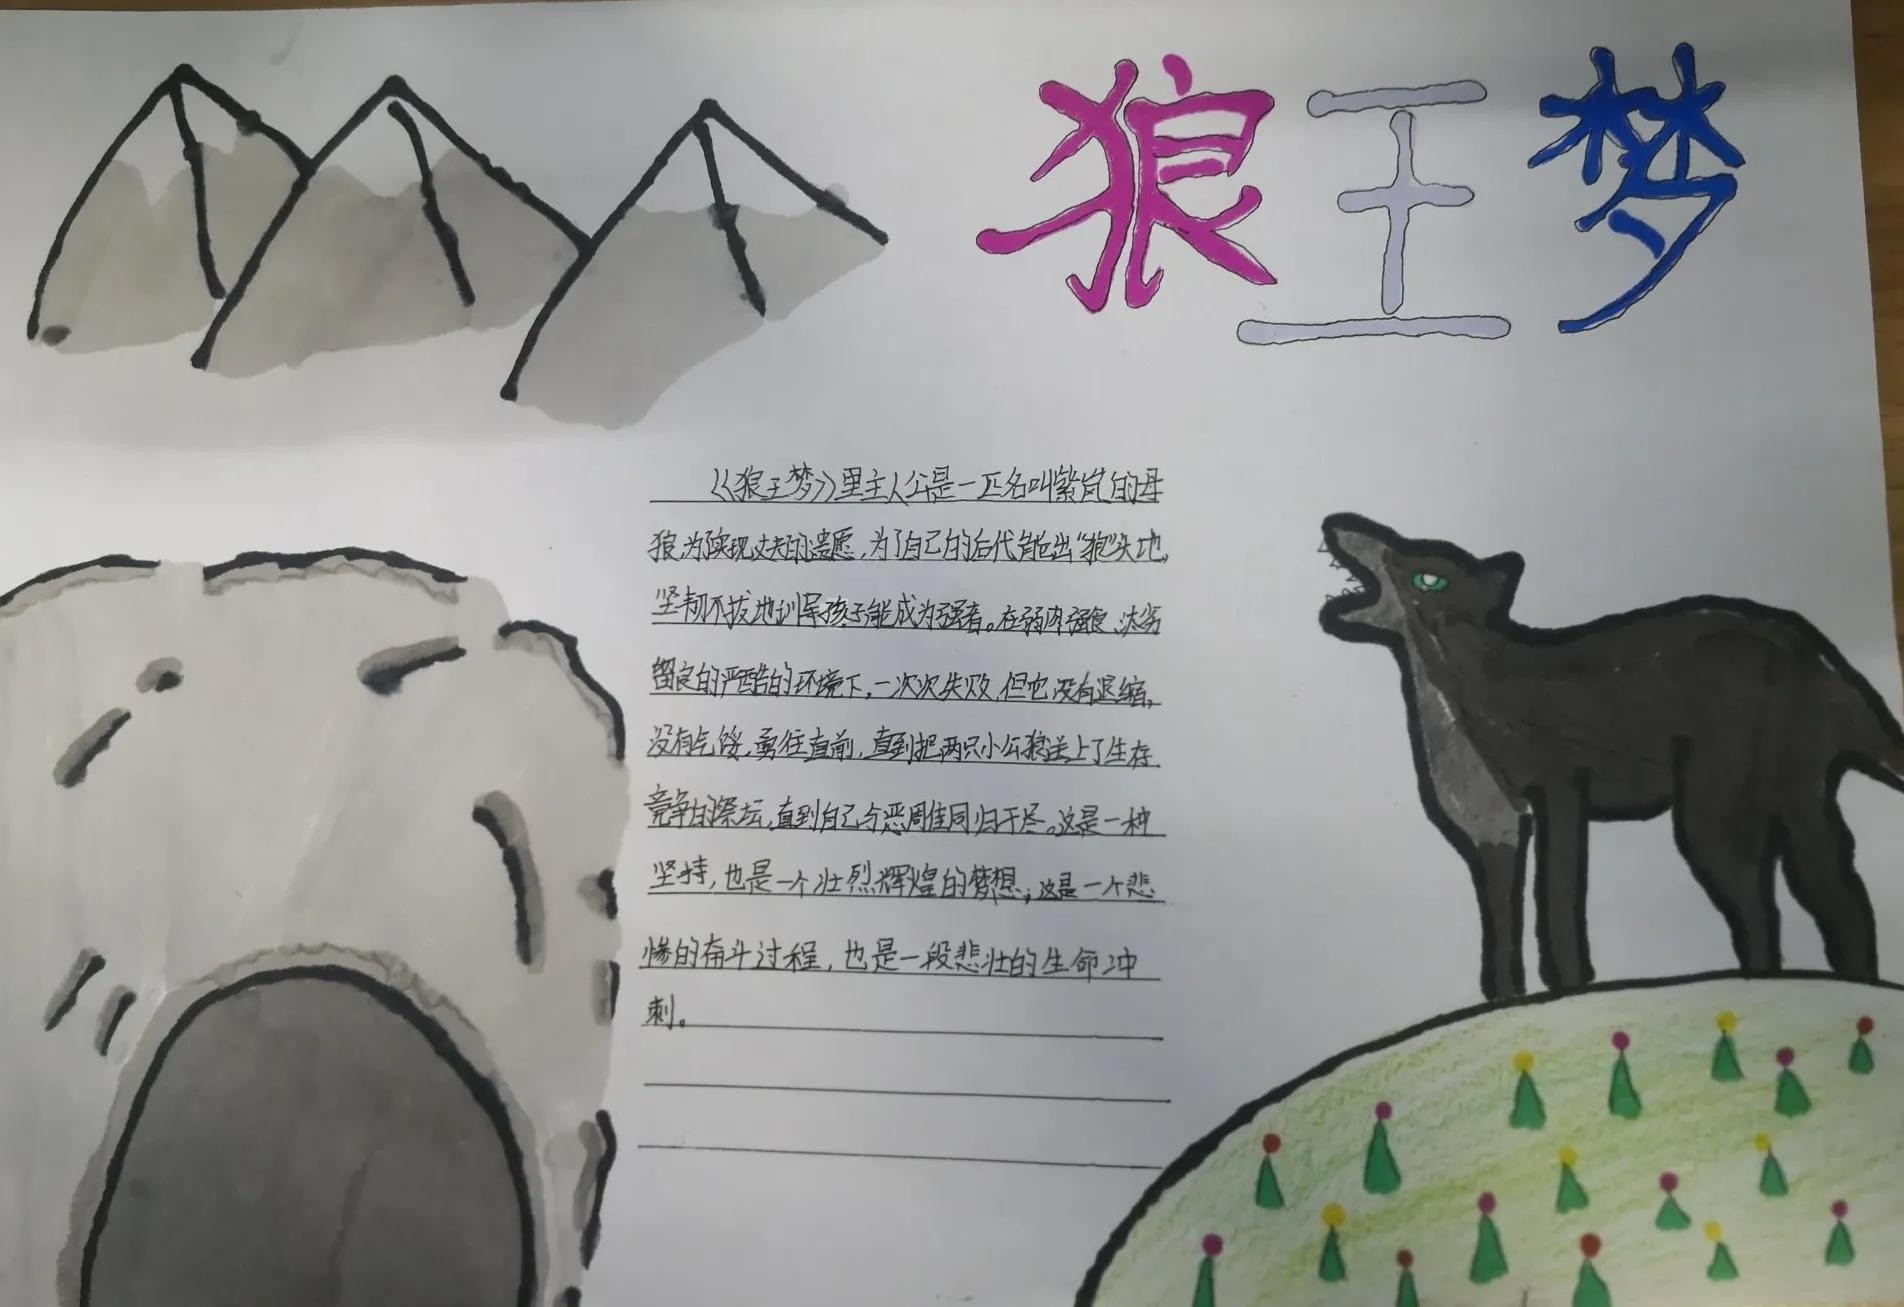 狼王梦
《狼王梦》里主人公是一匹名叫紫岚的母
狼,为了实现丈夫的遗愿,为了自己的后代能出“狼”头地,
坚韧不拔地训导孩子能成为强者。在弱肉强食、汰劣
留良的严酷的环境下,一次次失败,但它没有退缩,
没有气馁,勇往直前,直到把两只小公狼送上了生存
竞争的祭坛,直到自己与恶周隹同归于尽。这是一种
坚持,也是一个壮烈辉煌的梦想;这是一个悲
惨的奋斗过程,也是一段悲壮的生命冲
刺。